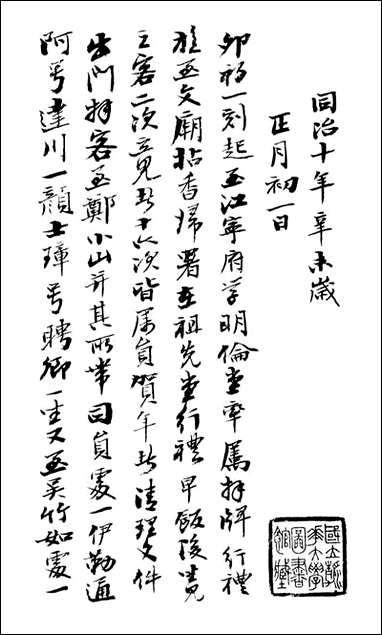 同治十年辛未歲
正月初一日
卯初一刻起至江寧府學明倫堂率屬拜牌行禮
旋至文廟拈香歸署在祖先堂行禮早飯後見
之客二次立見者十六次皆屬員賀年者清理文件
出門拜客至鄭小山并其所帶司員處一伊勒通
阿號達川一顏士璋號聘卿一坐又至吳竹如處一